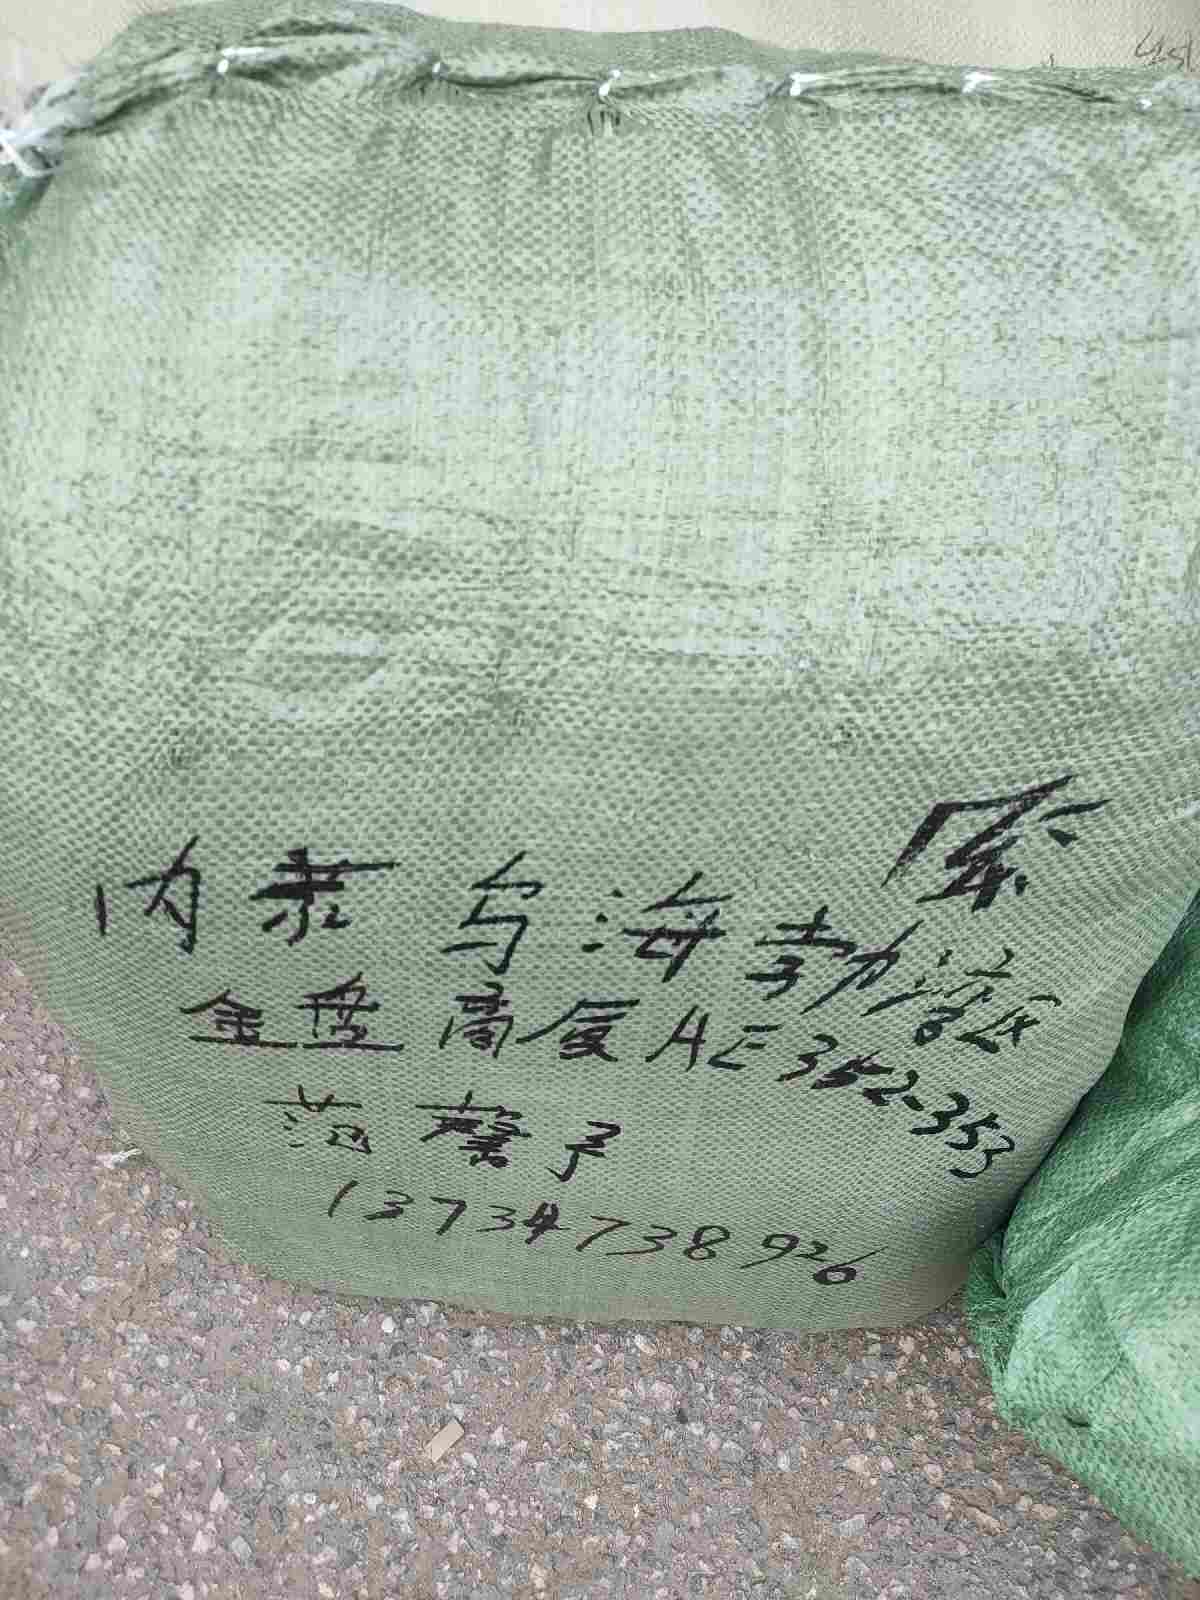 内蒙乌海勃湾区
金盘高厦AE352-353
范馨予
13734738926